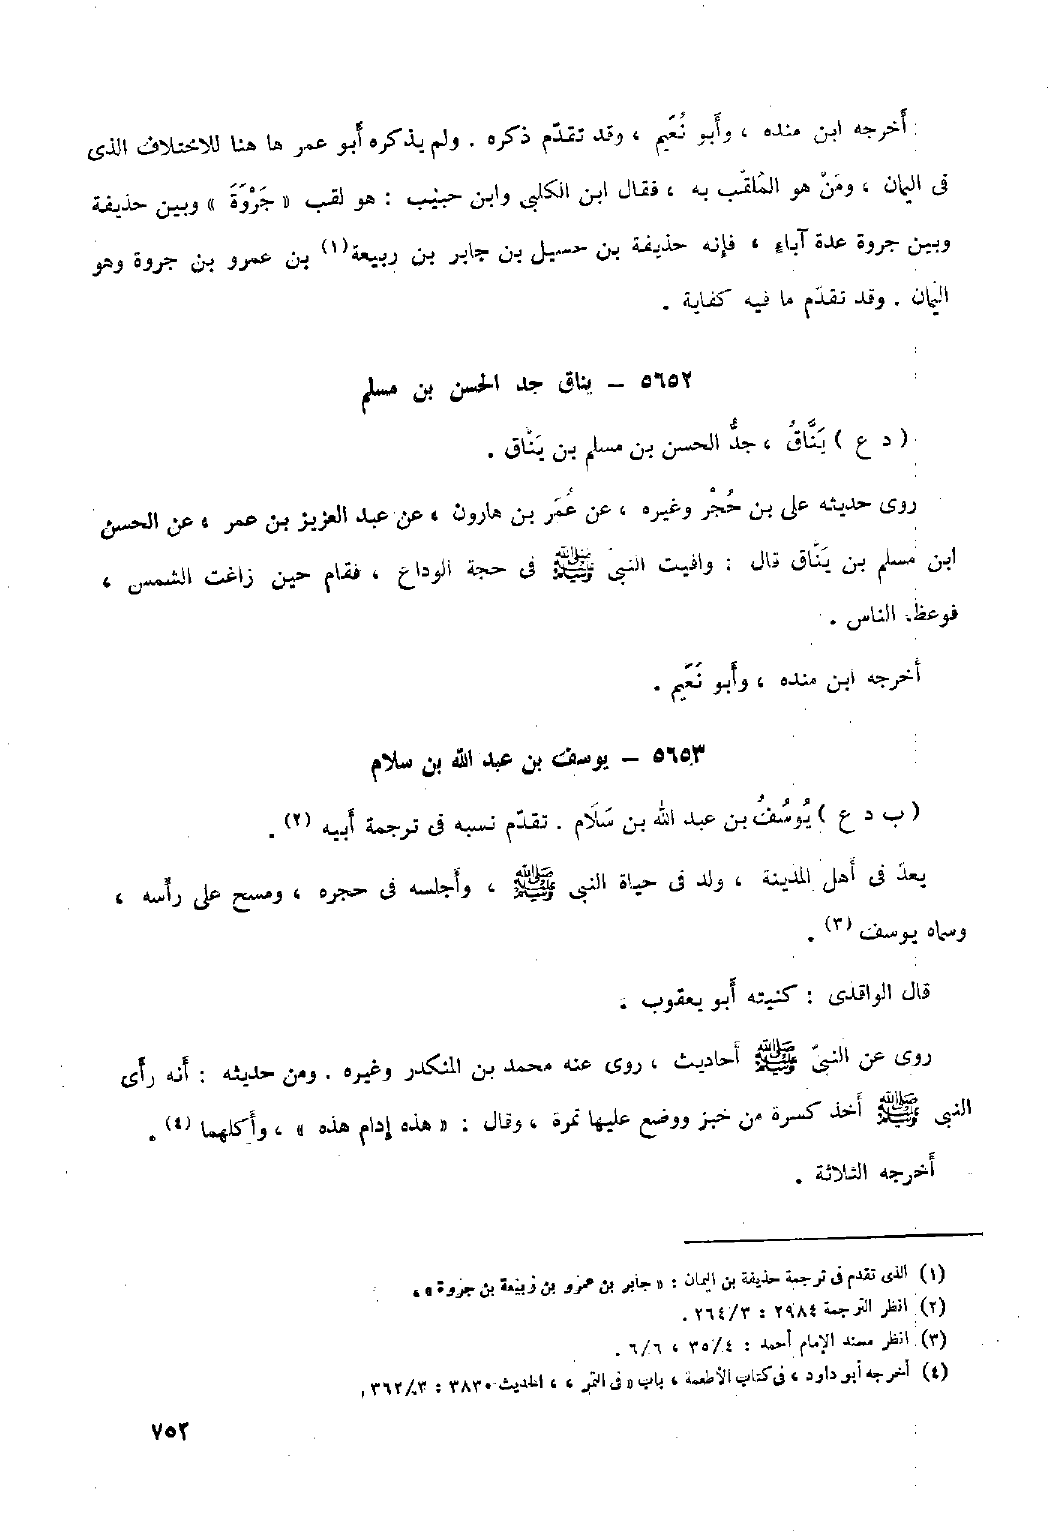 أخرجه ابن منده ، وأبو نُعَيم ، وقد تقدّم ذكره . ولم يذكره أبو عمر ها هنا للاختلاف الذى
فى اليمان ، ومَنْ هو المُلقّب به ، فقال ابن الكلبي وابن حبيب : هو لقب « جَرْوَةَ » وبين حذيفة
وبين جروة عدة آباءٍ ، فإنه حذيفة بن حسيل بن جابر بن ربيعة (١) بن عمرو بن جروة وهو
اليمان . وقد تقدّم ما فيه كفاية .
٥٦٥٢ – يناق جد الحسن بن مسلم
( د ع ) يَنَّاقُ ، جدُّ الحسن بن مسلم بن يَنّاق .
روى حديثه على بن حُجْر وغيره ، عن عُمَر بن هارون ، عن عبد العزيز بن عمر ، عن الحسن
ابن مسلم بن يَنّاق قال : وافيت النبيّ ﷺ فى حجة الوداع ، فقام حين زاغت الشمس ،
فوعظ الناس .
أخرجه ابن منده ، وأبو نُعَيم .
٥٦٥٣ – يوسف بن عبد الله بن سلام
( ب د ع ) يُوسُفُ بن عبد الله بن سَلَام . تقدّم نسبه فى ترجمة أبيه (٢) .
يعدّ فى أهل المدينة ، ولد فى حياة النبي ﷺ ، وأجلسه فى حجره ، ومسح على رأسه ،
وسماه يوسف (٣) .
قال الواقدى : كنيته أبو يعقوب .
روى عن النبيّ ﷺ أحاديث ، روى عنه محمد بن المنكدر وغيره . ومن حديثه : أنه رأى
النبي ﷺ أخذ كسرة من خبز ووضع عليها تمرة ، وقال : « هذه إدام هذه » ، وأكلهما (٤) .
أخرجه الثلاثة .
(١) الذى تقدم فى ترجمة حذيفة بن اليمان : « جابر بن عمرو بن ربيعة بن جروة » .
(٢) انظر الترجمة ٢٩٨٤ : ٢٦٤/٣ .
(٣) انظر مسند الإمام أحمد : ٣٥/٤ ، ٦/٦ .
(٤) أخرجه أبو داود ، فى كتاب الأطعمة ، باب « فى التمر » ، الحديث ٣٨٣٠ : ٣٦٢/٣ .
٧٥٢